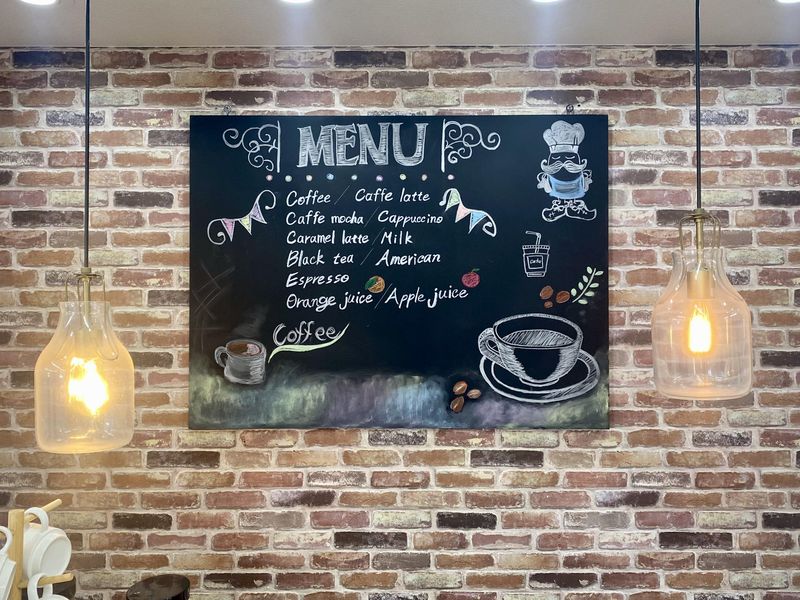 MENU
Coffee / Caffe latte
Caffe mocha / Cappuccino
Caramel latte / Milk
Black tea / American
Espresso
Orange juice / Apple juice
Cafe
Coffee